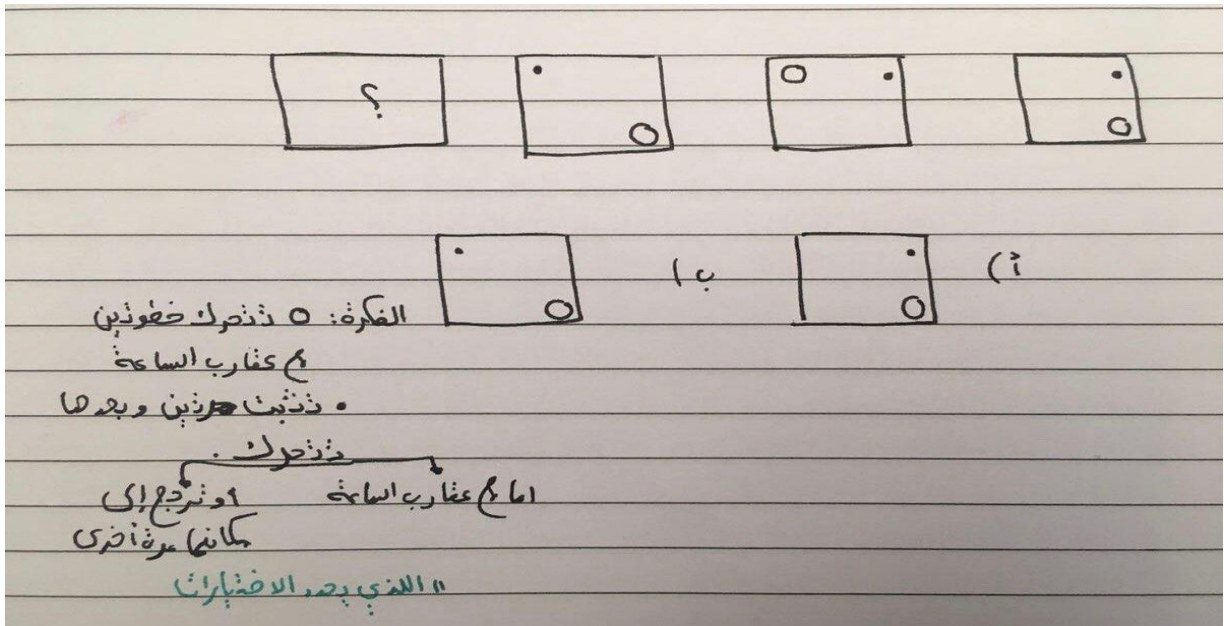 ؟
أ)
ب)
الفكرة: O تتحرك خطوتين
مع عقارب الساعة
• تثبت مرتين وبعدها
تتحرك .
اما مع عقارب الساعة
أو ترجع إلى
مكانها مرة أخرى
"اللذي يحدد الاختيارات